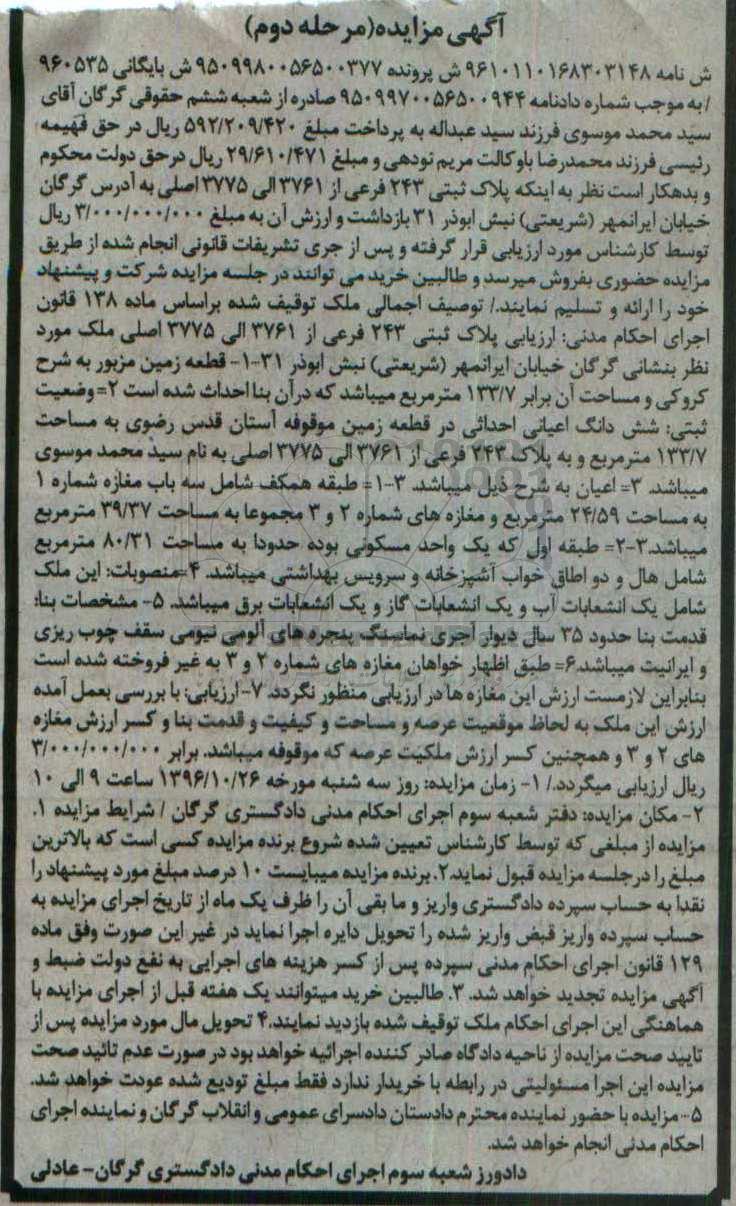 آگهی مزایده(مرحله دوم)
ش نامه ۹۶۱۰۱۱۰۱۶۸۳۰۳۱۴۸ ش پرونده ۹۵۰۹۹۸۰۰۵۶۵۰۰۳۷۷ ش بایگانی ۹۶۰۵۳۵
/ به موجب شماره دادنامه ۹۵۰۹۹۷۰۰۵۶۵۰۰۹۴۴ صادره از شعبه ششم حقوقی گرگان آقای
سید محمد موسوی فرزند سید عبداله به پرداخت مبلغ ۵۹۲/۲۰۹/۴۲۰ ریال در حق فهیمه
رئیسی فرزند محمدرضا باوکالت مریم نودهی و مبلغ ۲۹/۶۱۰/۴۷۱ ریال درحق دولت محکوم
و بدهکار است نظر به اینکه پلاک ثبتی ۲۴۳ فرعی از ۳۷۶۱ الی ۳۷۷۵ اصلی به آدرس گرگان
خیابان ایرانمهر (شریعتی) نبش ابوذر ۳۱ بازداشت و ارزش آن به مبلغ ۳/۰۰۰/۰۰۰/۰۰۰ ریال
توسط کارشناس مورد ارزیابی قرار گرفته و پس از جری تشریفات قانونی انجام شده از طریق
مزایده حضوری بفروش میرسد و طالبین خرید می توانند در جلسه مزایده شرکت و پیشنهاد
خود را ارائه و تسلیم نمایند./ توصیف اجمالی ملک توقیف شده براساس ماده ۱۳۸ قانون
اجرای احکام مدنی: ارزیابی پلاک ثبتی ۲۴۳ فرعی از ۳۷۶۱ الی ۳۷۷۵ اصلی ملک مورد
نظر بنشانی گرگان خیابان ایرانمهر (شریعتی) نبش ابوذر ۳۱-۱- قطعه زمین مزبور به شرح
کروکی و مساحت آن برابر ۱۳۳/۷ مترمربع میباشد که درآن بنا احداث شده است ۲= وضعیت
ثبتی: شش دانگ اعیانی احداثی در قطعه زمین موقوفه آستان قدس رضوی به مساحت
۱۳۳/۷ مترمربع و به پلاک ۲۴۳ فرعی از ۳۷۶۱ الی ۳۷۷۵ اصلی به نام سید محمد موسوی
میباشد. ۳= اعیان به شرح ذیل میباشد. ۳-۱= طبقه همکف شامل سه باب مغازه شماره ۱
به مساحت ۲۴/۵۹ مترمربع و مغازه های شماره ۲ و ۳ مجموعا به مساحت ۳۹/۳۷ مترمربع
میباشد.۳-۲= طبقه اول که یک واحد مسکونی بوده حدودا به مساحت ۸۰/۳۱ مترمربع
شامل هال و دو اطاق خواب آشپزخانه و سرویس بهداشتی میباشد. ۴=منصوبات: این ملک
شامل یک انشعابات آب و یک انشعابات گاز و یک انشعابات برق میباشد. ۵- مشخصات بنا:
قدمت بنا حدود ۳۵ سال دیوار آجری نماسنگ پنجره های آلومی نیومی سقف چوب ریزی
و ایرانیت میباشد.۶= طبق اظهار خواهان مغازه های شماره ۲ و ۳ به غیر فروخته شده است
بنابراین لازمست ارزش این مغازه ها در ارزیابی منظور نگردد. ۷-ارزیابی: با بررسی بعمل آمده
ارزش این ملک به لحاظ موقعیت عرصه و مساحت و کیفیت و قدمت بنا و کسر ارزش مغازه
های ۲ و ۳ و همچنین کسر ارزش ملکیت عرصه که موقوفه میباشد. برابر ۳/۰۰۰/۰۰۰/۰۰۰
ریال ارزیابی میگردد./ ۱- زمان مزایده: روز سه شنبه مورخه ۱۳۹۶/۱۰/۲۶ ساعت ۹ الی ۱۰
۲- مکان مزایده: دفتر شعبه سوم اجرای احکام مدنی دادگستری گرگان / شرایط مزایده ۱.
مزایده از مبلغی که توسط کارشناس تعیین شده شروع برنده مزایده کسی است که بالاترین
مبلغ را درجلسه مزایده قبول نماید.۲. برنده مزایده میبایست ۱۰ درصد مبلغ مورد پیشنهاد را
نقدا به حساب سپرده دادگستری واریز و ما بقی آن را ظرف یک ماه از تاریخ اجرای مزایده به
حساب سپرده واریز قبض واریز شده را تحویل دایره اجرا نماید در غیر این صورت وفق ماده
۱۲۹ قانون اجرای احکام مدنی سپرده پس از کسر هزینه های اجرایی به نفع دولت ضبط و
آگهی مزایده تجدید خواهد شد. ۳. طالبین خرید میتوانند یک هفته قبل از اجرای مزایده با
هماهنگی این اجرای احکام ملک توقیف شده بازدید نمایند.۴ تحویل مال مورد مزایده پس از
تایید صحت مزایده از ناحیه دادگاه صادر کننده اجرائیه خواهد بود در صورت عدم تائید صحت
مزایده این اجرا مسئولیتی در رابطه با خریدار ندارد فقط مبلغ تودیع شده عودت خواهد شد.
۵- مزایده با حضور نماینده محترم دادستان دادسرای عمومی و انقلاب گرگان و نماینده اجرای
احکام مدنی انجام خواهد شد.
دادورز شعبه سوم اجرای احکام مدنی دادگستری گرگان- عادلی